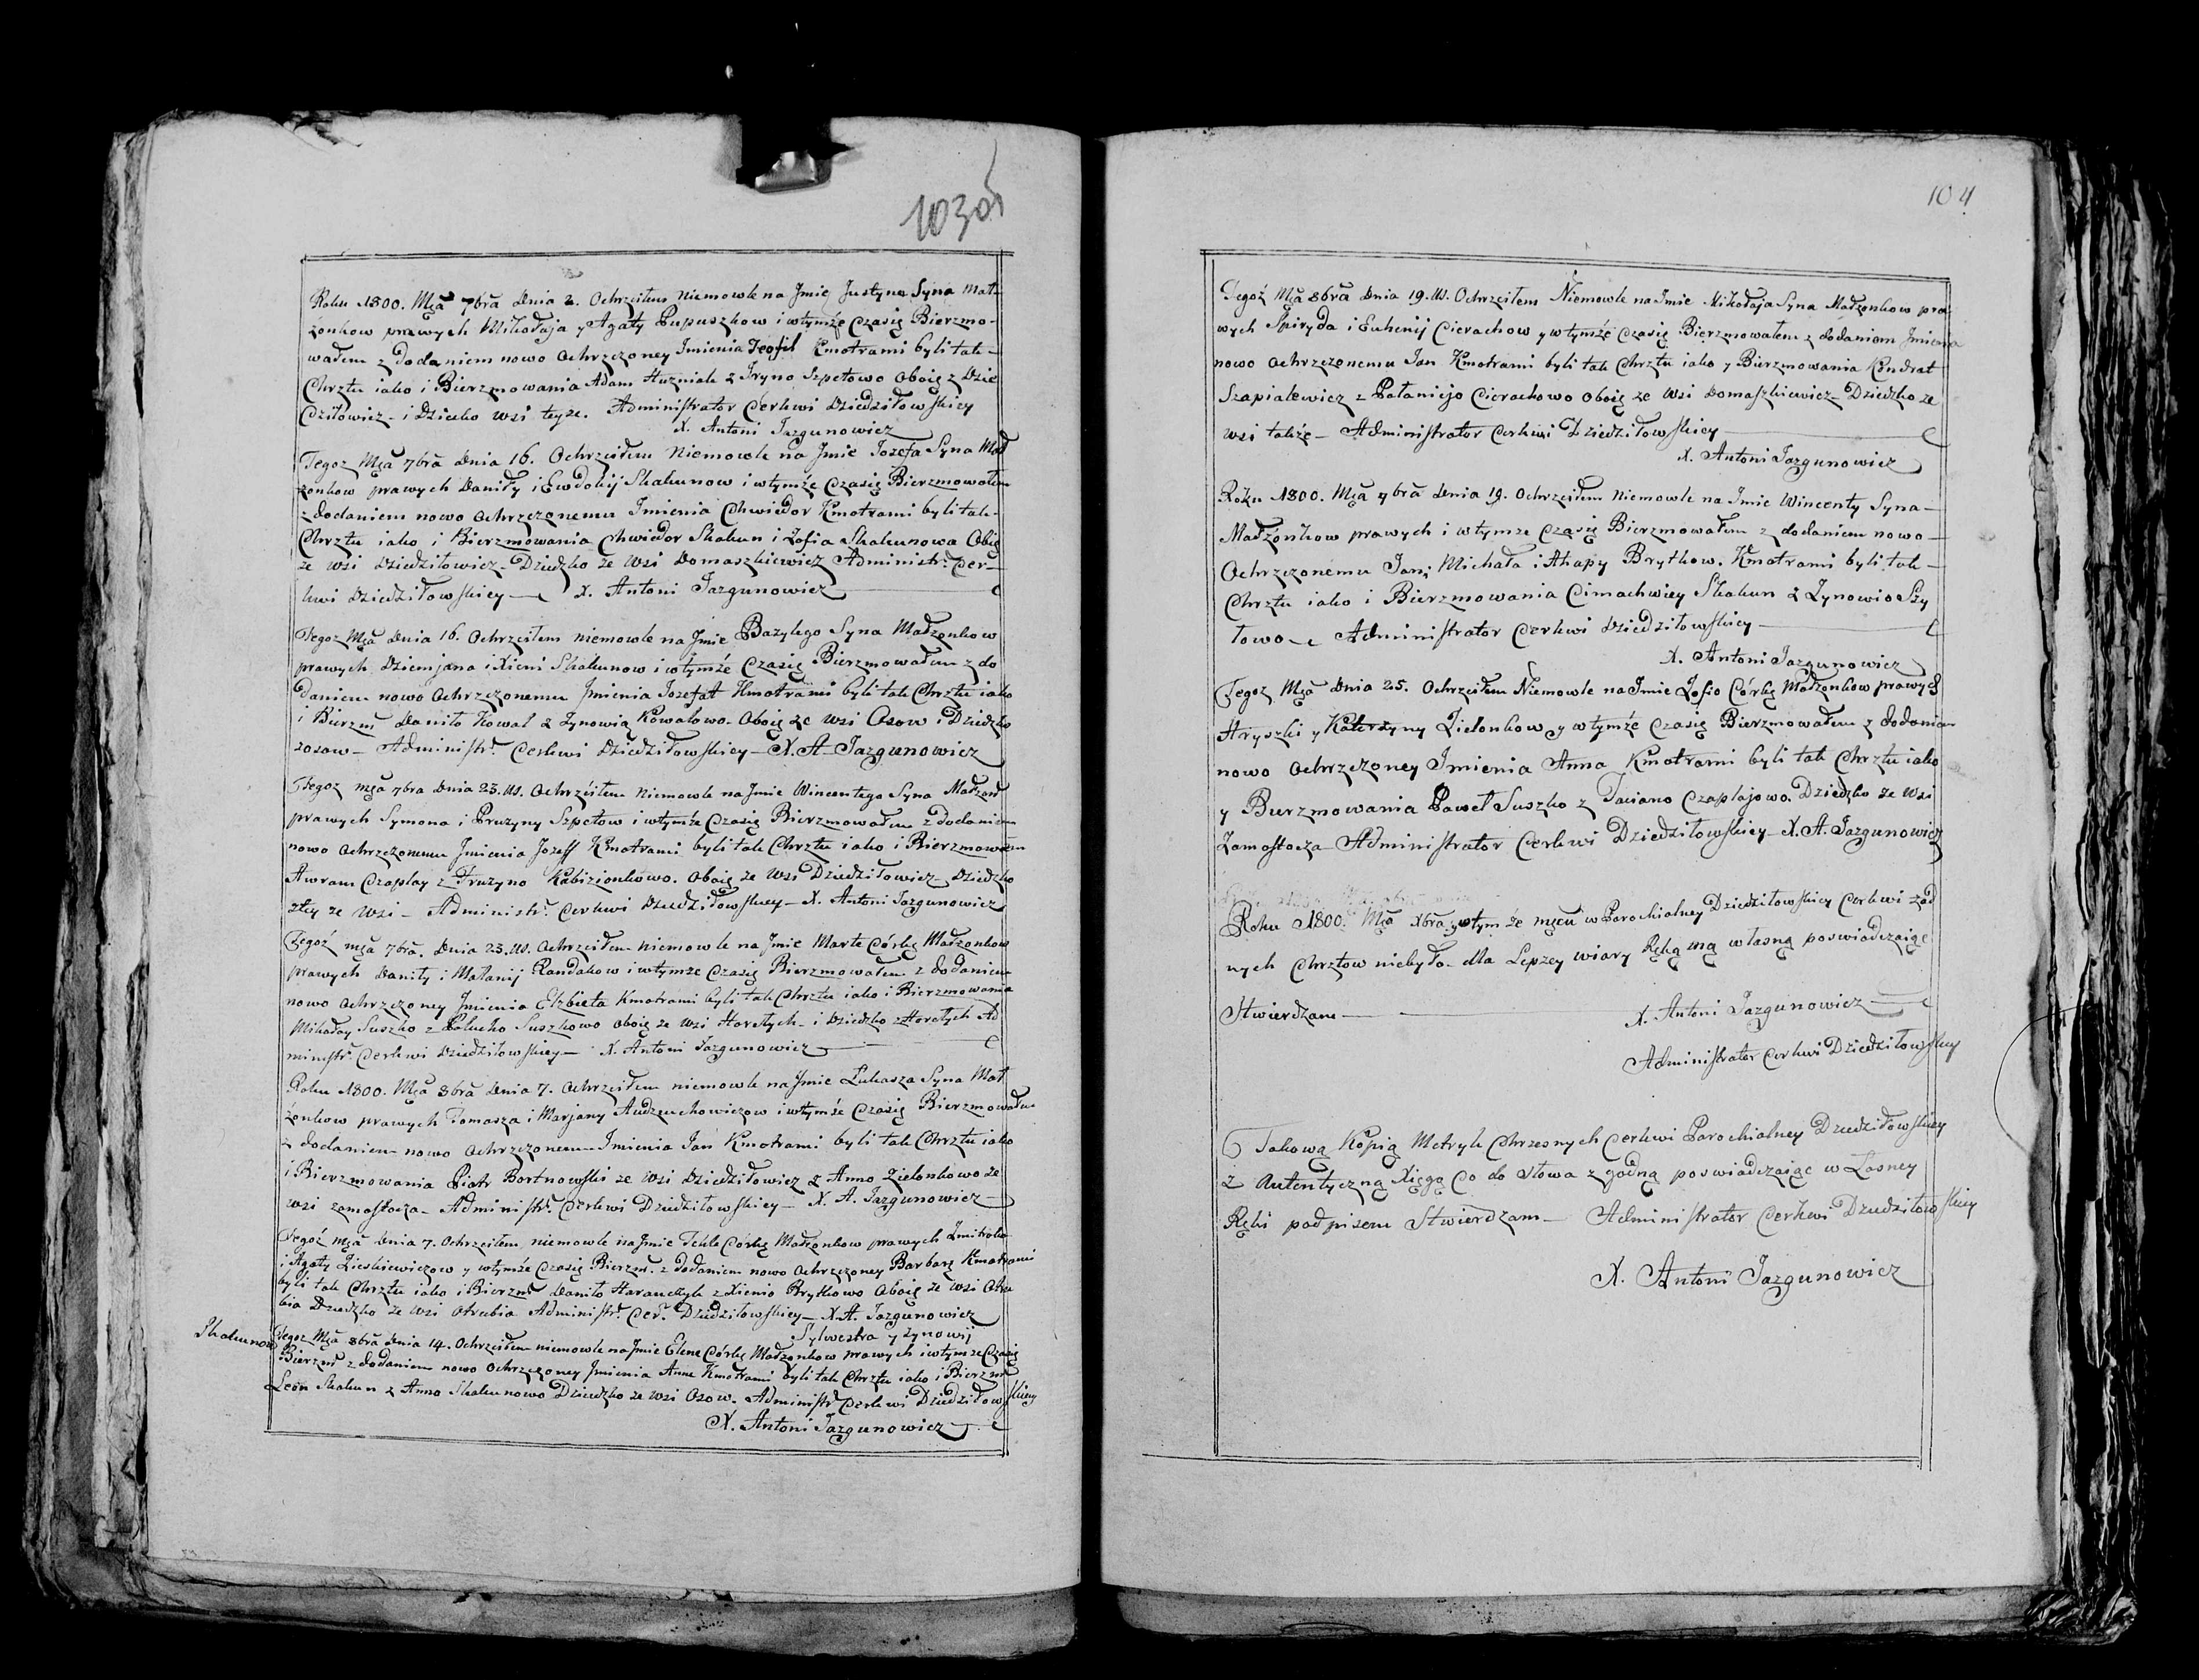 103об
Roku 1800. Mca 7bra Dnia 2. Ochrzciłem Niemowle na Jmie Justyna Syna Mał-
żonkow prawych Mikołaja y Agaty Łupuszkow i wtymże Czasie Bierzmo-
wałem z Dodaniem nowo Ochrzczoney Imienia Teofil Kmotrami byli tak
Chrztu iako i Bierzmowania Adam Huzniak z Jryno Szpetowo Oboie z Dzie
Dziłowicz i Dziecko wsi teyze. Administrator Cerkwi Dziedziłowskiey
X. Antoni Jazgunowicz
Tegoz Mca 7bra Dnia 16. Ochrzciłem Niemowle na Jmie Jozefa Syna Mał
zonkow prawych Daniły i Ewdokij Skakunow i wtymże Czasie Bierzmowałem
z Dodaniem nowo Ochrzczonemu Imienia Chwiedor Kmotrami byli tak
Chrztu iako i Bierzmowania Chwiedor Skakun i Zofia Skakunowa Oboie
ze wsi Dziedziłowicz Dziecko ze Wsi Domaszkiewicz Administr. Cer-
kwi Dziedziłowskiey X. Antoni Jazgunowicz
Tegoz Mca Dnia 16. Ochrzciłem niemowle na Jmie Bazylego Syna Małżonkow
prawych Dziemjana i Xieni Skakunow i wtymże Czasie Bierzmowałem z do
daniem nowo Ochrzczonemu Jmienia Jozefat Kmotrami byli tak Chrztu iako
i Bierzm Daniło Kowal z Zynowią Kowalowo Oboie ze wsi Osow i Dziecko
zosow Administr. Cerkwi Dziedziłowskiey X. A. Jazgunowicz
Tegoz mca 7bra Dnia 23. Ochrzciłem Niemowle na Jmie Wincentego Syna Małżon
prawych Symona i Pruzyny Szpetow i wtymże Czasie Bierzmowałem z Dodaniem
nowo Ochrzczonemu Jmienia Jozeff Kmotrami byli tak Chrztu iako i Bierzmowan
Awram Czaplay z Pruzyno Kabizionkowo. Oboie ze Wsi Dziedziłowicz Dziecko
ztey ze Wsi Administr. Cerkwi Dziedziłowskiey X. Antoni Jazgunowicz
Tegoż mca 7bra. Dnia 23. Ochrzciłem niemowle na Jmie Marte Córkę Małżonkow
prawych Daniły i Małanij Randakow i wtymze Czasie Bierzmowałem z dodaniem
nowo Ochrzczoney Jmienia Elzbieta Kmotrami byli tak Chrztu iako i Bierzmowania
Mikołay Suszko z Suszkowo oboie ze wsi i Dziecko Ad
ministr. Cerkwi Dziedziłowskiey X. Antoni Jazgunowicz
Roku 1800. Mca 8bra Dnia 7. Ochrzciłem niemowle na Jmie Łukasza Syna Mał
żonkow prawych Tomasza i Marjany Audzeuchowiczow i wtymże Czasie Bierzmowałem
z dodaniem nowo Ochrzczonemu Imienia Jan Kmotrami byli tak Chrztu iako
i Bierzmowania Piotr Bortnowski ze wsi Dziedziłowicz z Anno Zielonkowo ze
wsi zamostocza Administr. Cerkwi Dziedziłowskiey X. A. Jazgunowicz
Tegoż mca Dnia 7. Ochrzciłem niemowle na Jmie Tekle Córkę Małżonkow prawych
i Agaty y wtymże Czasie Bierzm. z dodaniem nowo Ochrzczoney Barbarę Kmotrami
byli tak Chrztu iako i Bierzm Daniło z Xienio Brytkowo Oboie ze wsi Otru
bia Dziecko ze wsi Otrubia Administr. Cer. Dziedziłowskiey X. A. Jazgunowicz
Sylwestra y Zynowij
Skakunow Tegoz Mca 8bra Dnia 14. Ochrzciłem niemowle na Jmie Elene Córkę Małżonkow prawych i wtymze Czasie
Bierzm z dodaniem nowo Ochrzczoney Jmienia Anna Kmotrami byli tak Chrztu iako i Bierzm
Leon Skakun z Anno Skakunowo Dziecko ze wsi Osow. Administr Cerkwi Dziedziłowskiey
X. Antoni Jazgunowicz
104
Tegoż Mca 8bra Dnia 19. Ochrzciłem Niemowle na Jmie Mikołaja Syna Małżonkow pra
wych Spiryda i Euhenij Cierachow y wtymże Czasie Bierzmowałem z dodaniem Jmienia
nowo Ochrzczonemu Jan Kmotrami byli tak Chrztu iako y Bierzmowania Kondrat
Szapialewicz z Pałanicjo Cierachowo oboie ze wsi Domaszkiewicz Dziecko ze
wsi także Administrator Cerkwi Dziedziłowskiey
X. Antoni Jazgunowicz
Roku 1800. Mca 9bra Dnia 19. Ochrzciłem Niemowle na Jmie Wincenty Syna
Małżonkow prawych i wtymze Czasie Bierzmowałem z dodaniem nowo
Ochrzczonemu Jan, Michała i Ahapy Brytkow. Kmotrami byli tak
Chrztu iako i Bierzmowania Cimachwiey Skakun z Zynowio Szy
towo Administrator Cerkwi Dziedziłowskiey
X. Antoni Jazgunowicz
Tegoz Mca Dnia 25. Ochrzciłem Niemowle na Jmie Zofio Córkę Małżonkow prawych
Hryszki y Katerzyny Zielonkow y wtymże Czasie Bierzmowałem z dodaniem
nowo Ochrzczoney Imienia Anna Kmotrami byli tak Chrztu iako
y Bierzmowania Paweł Suszko z Taciano Czaplajowo. Dziecko ze wsi
Zamostocza Administrator Cerkwi Dziedziłowskiey X. A. Jazgunowicz
Roku 1800. Mca Xbra y wtym że mcu w Parochialney Dziedziłowskiey Cerkwi żad
nych Chrztow niebyło dla Lepzey wiary Ręką mą własną poswiadczaiąc
Stwierdzam
X. Antoni Jazgunowicz
Administrator Cerkwi Dziedziłowskiey
Takową Kopią Metryk Chrzesnych Cerkwi Parochialney Dziedziłowskiey
z Autentyczną Xięgą Co do Słowa zgodną poswiadczaiąc w Łasney
Ręki podpisem Stwierdzam Administrator Cerkwi Dziedziłowskiey
X. Antoni Jazgunowicz